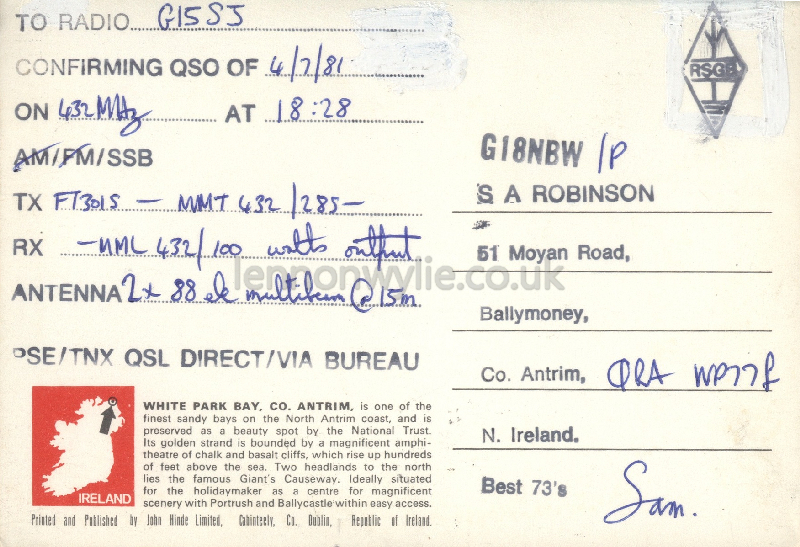 TO RADIO GI5SJ
CONFIRMING QSO OF 4/7/81
ON 432MHz AT 18:28
AM/FM/SSB
TX FT301S — MMT 432/285—
RX —MML 432/100 watts output
ANTENNA 2x 88 ele multibeam @ 15m
PSE/TNX QSL DIRECT/VIA BUREAU
RSGB
GI8NBW /P
S A ROBINSON
51 Moyan Road,
Ballymoney,
Co. Antrim, QRA WP77f
N. Ireland.
Best 73's Sam.
lennonwylie.co.uk
IRELAND
WHITE PARK BAY, CO. ANTRIM, is one of the
finest sandy bays on the North Antrim coast, and is
preserved as a beauty spot by the National Trust.
Its golden strand is bounded by a magnificent amphi-
theatre of chalk and basalt cliffs, which rise up hundreds
of feet above the sea. Two headlands to the north
lies the famous Giant's Causeway. Ideally situated
for the holidaymaker as a centre for magnificent
scenery with Portrush and Ballycastle within easy access.
Printed and Published by John Hinde Limited, Cabinteely, Co. Dublin, Republic of Ireland.